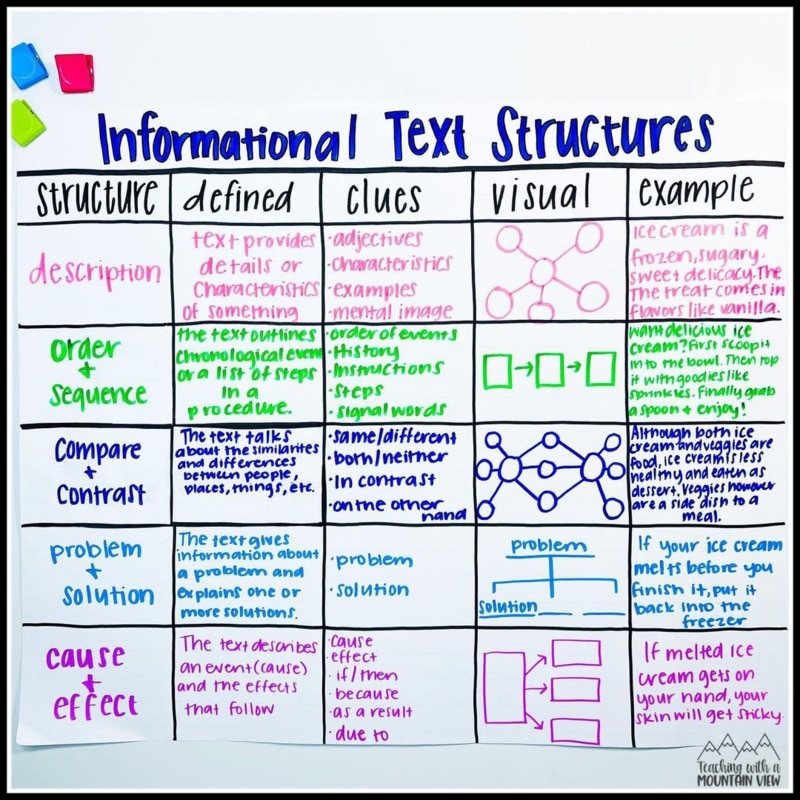 Informational Text Structures
structure
defined
clues
visual
example
description
text provides
details or
characteristics
of something
·adjectives
·characteristics
·examples
·mental image
Ice cream is a
frozen, sugary,
sweet delicacy. The
The treat comes in
flavors like vanilla.
order
+
sequence
the text outlines
chronological event
or a list of steps
in a
procedure.
·order of events
·History
·Instructions
·Steps
·signal words
Want delicious ice
cream? First scoop it
into the bowl. Then top
it with goodies like
sprinkles. Finally grab
a spoon + enjoy!
Compare
+
Contrast
The text talks
about the similarites
and differences
between people,
places, things, etc.
·same/different
·both/neither
·In contrast
·on the other
hand
Although both ice
cream and veggies are
food, ice cream is less
healthy and eaten as
dessert. Veggies however
are a side dish to a
meal.
problem
+
solution
The text gives
information about
a problem and
explains one or
more solutions.
·problem
·solution
problem
solution
If your ice cream
melts before you
finish it, put it
back into the
freezer
cause
+
effect
The text describes
an event (cause)
and the effects
that follow
·cause
·effect
·if/then
·because
·as a result
·due to
If melted ice
cream gets on
your hand, your
skin will get sticky.
Teaching with a
MOUNTAIN VIEW